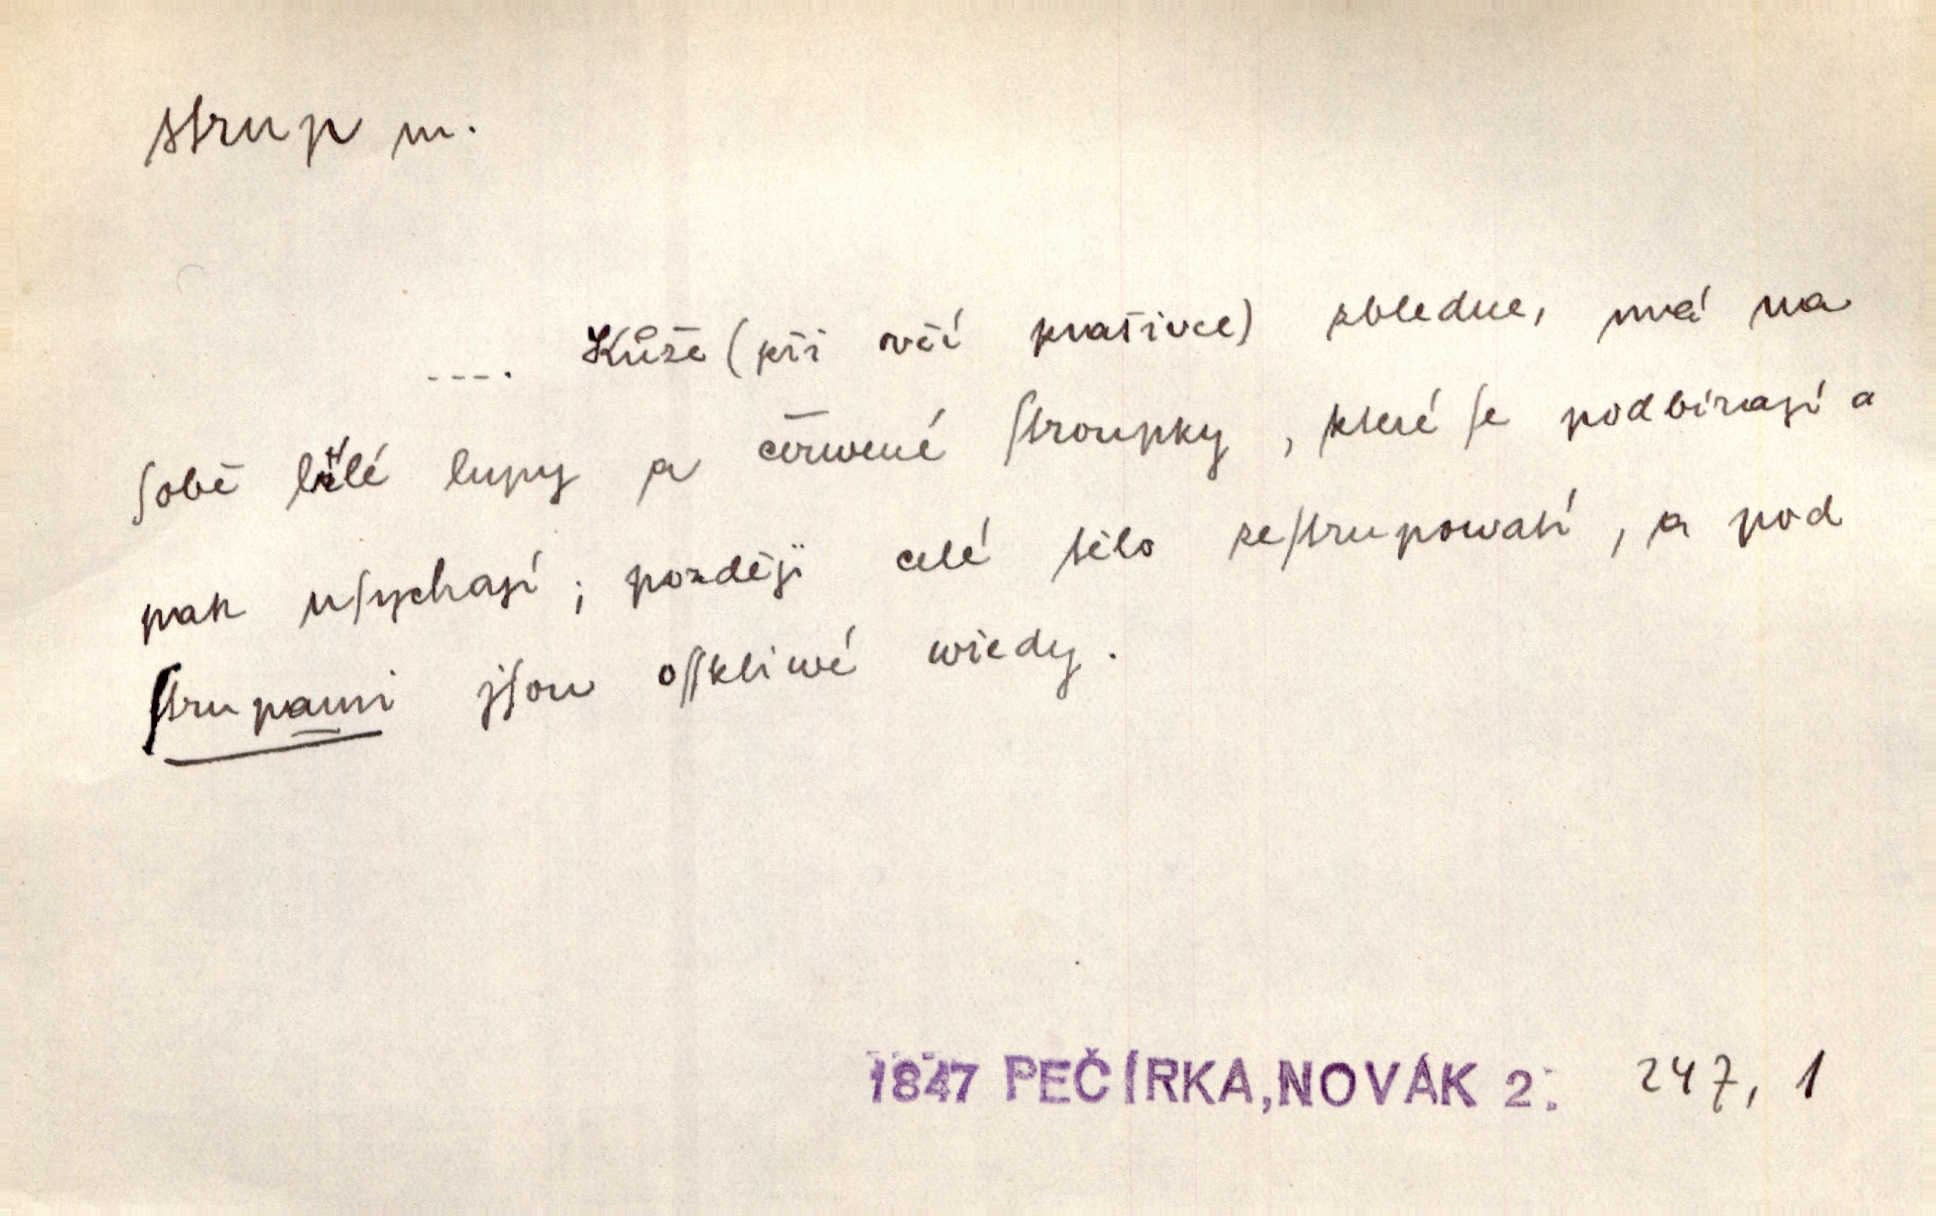 strup m.
.... Kůže (při ovčí prašivce) zbledne, má na
ſobě bílé lupy a cěrwené ſtroupky, které ſe podbíragí a
pak uſychagí; pozděgi celé tělo zeſtrupowatí, a pod
ſtrupami jſou oſſkliwé wředy.
1847 PEČÍRKA,NOVÁK 2: 247, 1